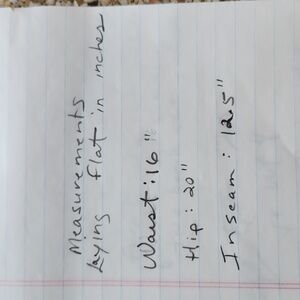 Measurements
Laying flat in inches
Waist: 16"
Hip: 20"
Inseam: 12.5"